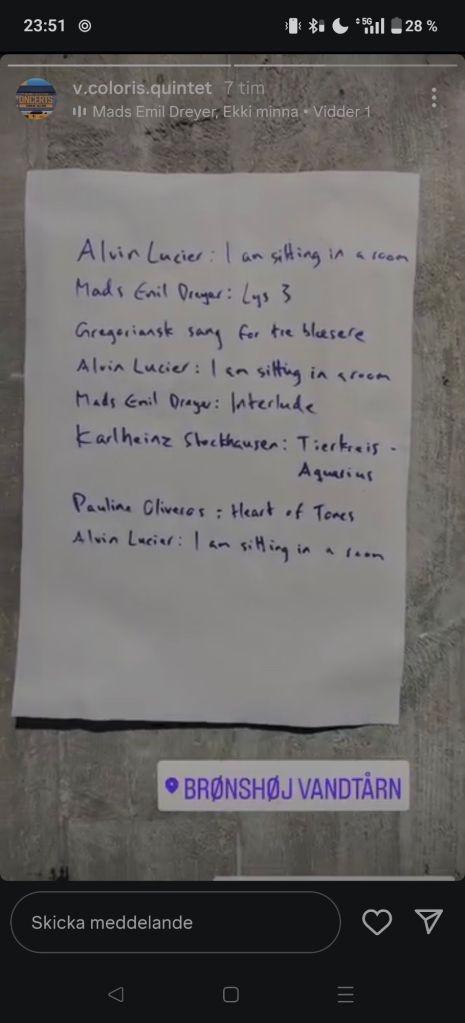 23:51
5G
28 %
v.coloris.quintet 7 tim
Mads Emil Dreyer, Ekki minna • Vidder 1
Alvin Lucier: I am sitting in a room
Mads Emil Dreyer: Lys 3
Gregoriansk sang for tre blæsere
Alvin Lucier: I am sitting in a room
Mads Emil Dreyer: Interlude
Karlheinz Stockhausen: Tierkreis -
Aquarius
Pauline Oliveros: Heart of Tones
Alvin Lucier: I am sitting in a room
BRØNSHØJ VANDTÅRN
Skicka meddelande